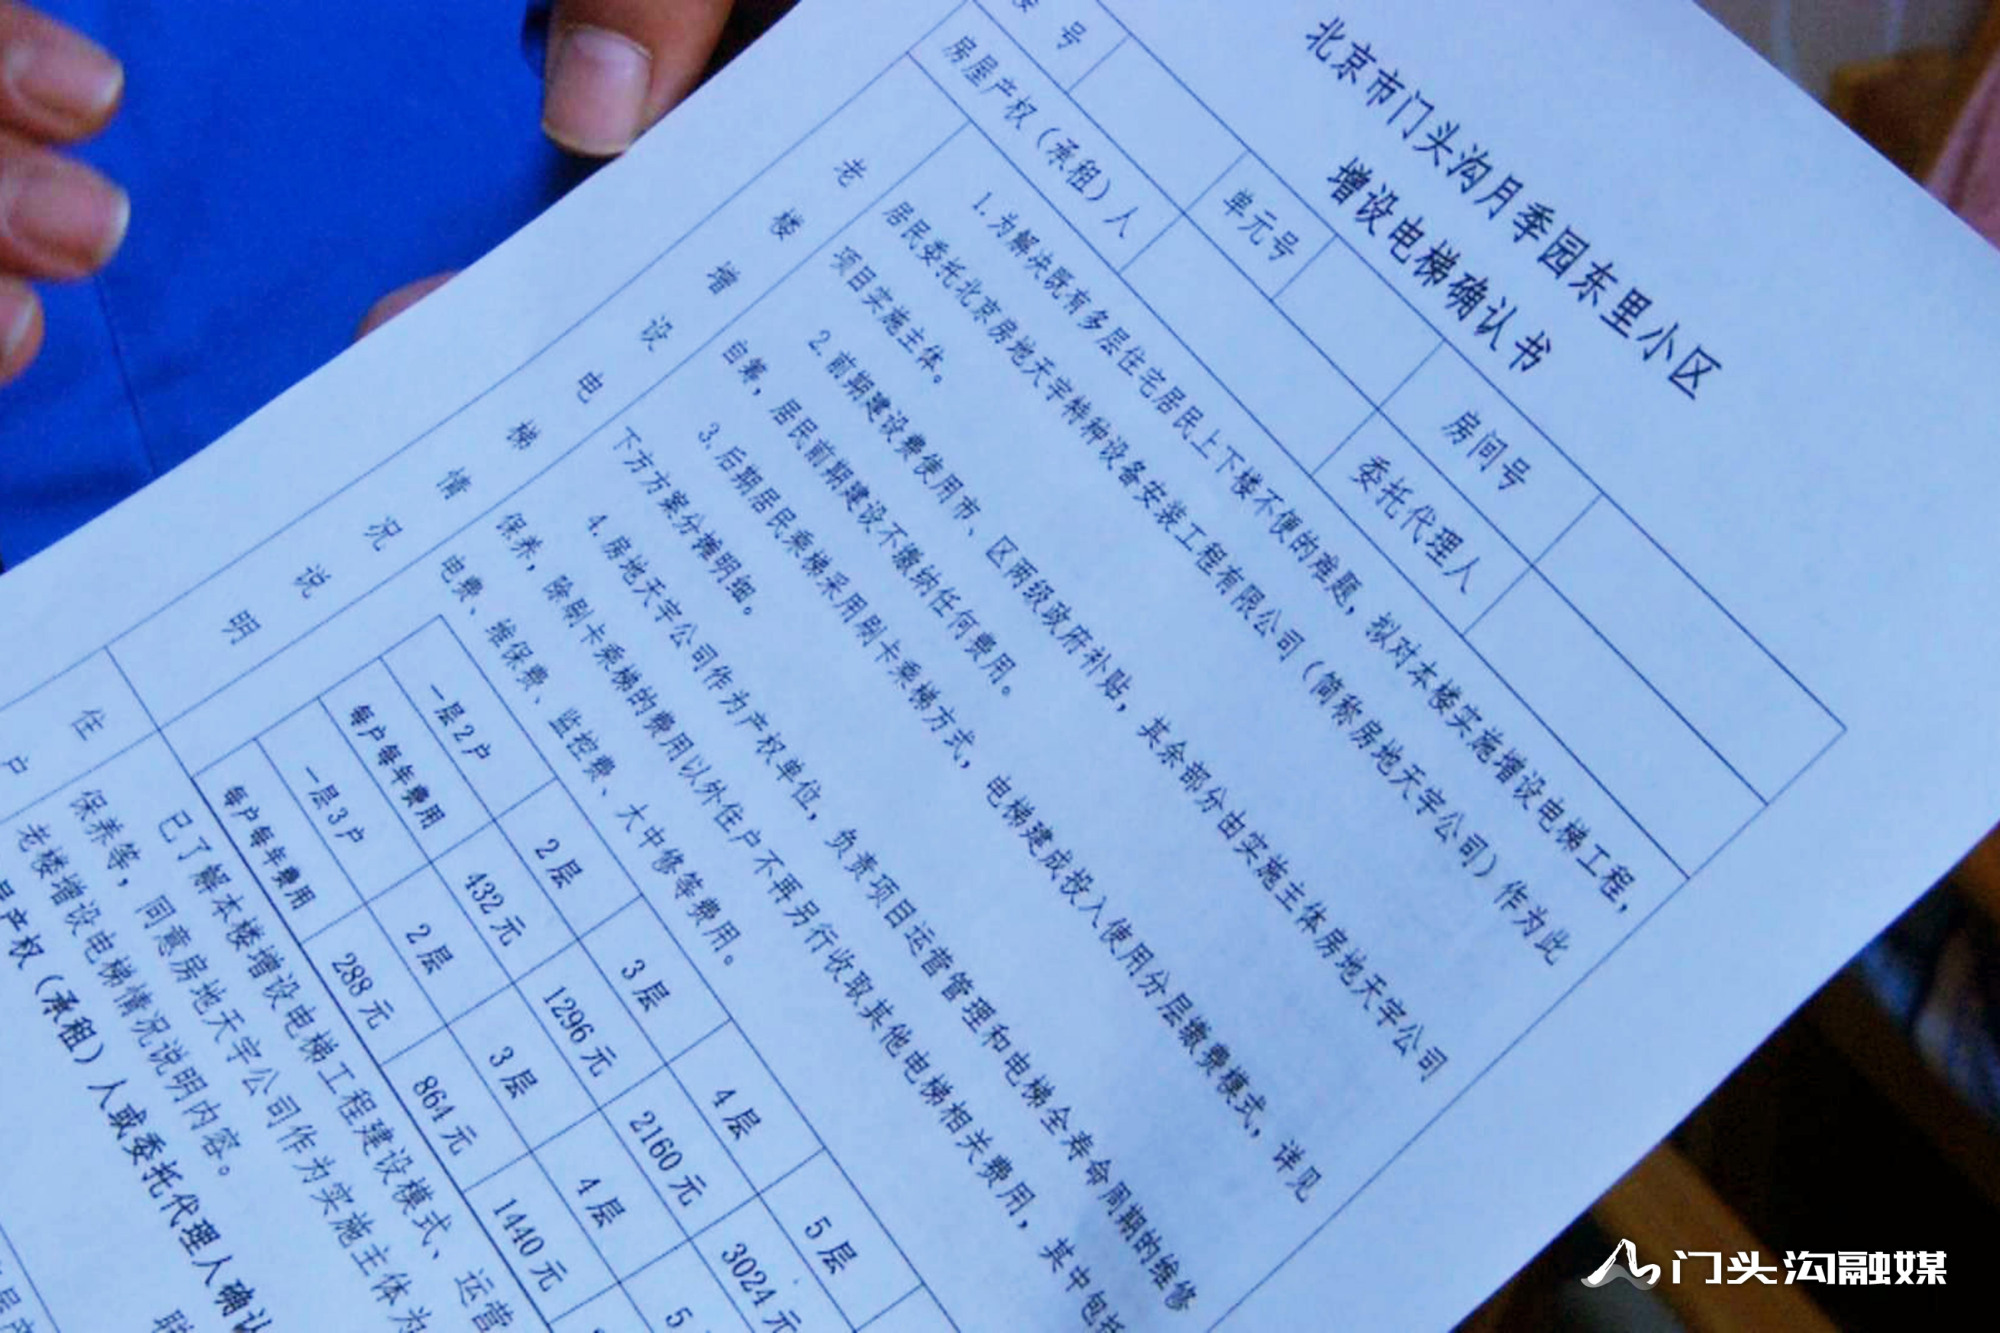 北京市门头沟月季园东里小区
增设电梯确认书
号 单元号 房间号
房屋产权（承租）人 委托代理人
老楼增设电梯情况说明
1.为解决既有多层住宅居民上下楼不便的难题，拟对本楼实施增设电梯工程，
居民委托北京房地天宇特种设备安装工程有限公司（简称房地天宇公司）作为此
项目实施主体。
2.前期建设费使用市、区两级政府补贴，其余部分由实施主体房地天宇公司
自筹，居民前期建设不缴纳任何费用。
3.后期居民乘梯采用刷卡乘梯方式，电梯建成投入使用分层缴费模式，详见
下方方案分摊明细。
4.房地天宇公司作为产权单位，负责项目运营管理和电梯全寿命周期的维修
保养，除刷卡乘梯的费用以外住户不再另行收取其他电梯相关费用，其中包括
电费、维保费、监控费、大中修等费用。
一层2户 2层 3层 4层 5层
每户每年费用 432元 1296元 2160元 3024元
一层3户 2层 3层 4层 5
每户每年费用 288元 864元 1440元
住户
已了解本楼增设电梯工程建设模式、运营
保养等，同意房地天宇公司作为实施主体为
老楼增设电梯情况说明内容。
产权（承租）人或委托代理人确认
联
门头沟融媒